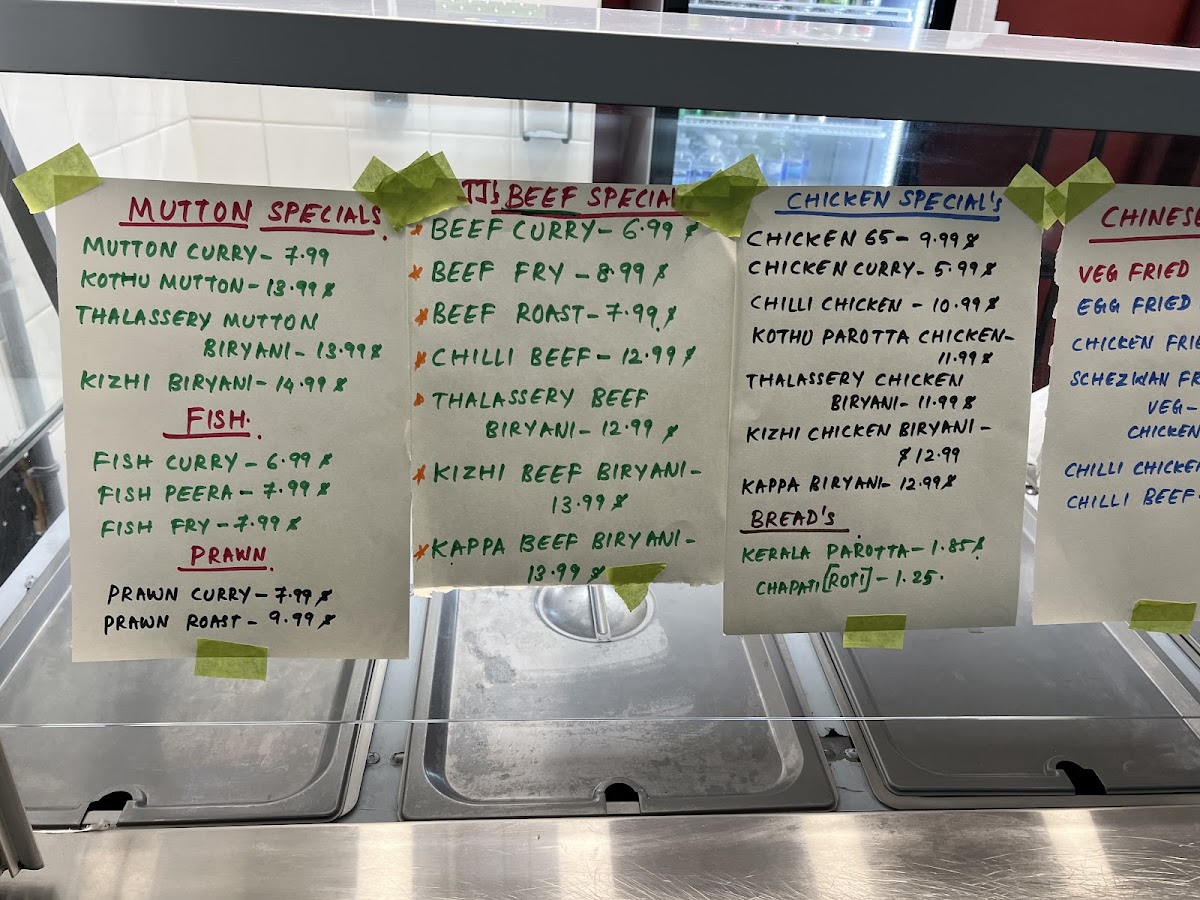 MUTTON SPECIALS.
MUTTON CURRY - 7.99
KOTHU MUTTON - 13.99 $
THALASSERY MUTTON
BIRYANI - 13.99 $
KIZHI BIRYANI - 14.99 $
FISH.
FISH CURRY - 6.99 $
FISH PEERA - 7.99 $
FISH FRY - 7.99 $
PRAWN
PRAWN CURRY - 7.99 $
PRAWN ROAST - 9.99 $
TJ's BEEF SPECIAL
BEEF CURRY - 6.99 $
BEEF FRY - 8.99 $
BEEF ROAST - 7.99 $
CHILLI BEEF - 12.99 $
THALASSERY BEEF
BIRYANI - 12.99 $
KIZHI BEEF BIRYANI -
13.99 $
KAPPA BEEF BIRYANI -
13.99 $
CHICKEN SPECIAL's
CHICKEN 65 - 9.99 $
CHICKEN CURRY - 5.99 $
CHILLI CHICKEN - 10.99 $
KOTHU PAROTTA CHICKEN -
11.99 $
THALASSERY CHICKEN
BIRYANI - 11.99 $
KIZHI CHICKEN BIRYANI -
$ 12.99
KAPPA BIRYANI - 12.99 $
BREAD's
KERALA PAROTTA - 1.85 $
CHAPATI [ROTI] - 1.25.
CHINES
VEG FRIED
EGG FRIED
CHICKEN FRIE
SCHEZWAN FR
VEG -
CHICKEN
CHILLI CHICKEN
CHILLI BEEF -